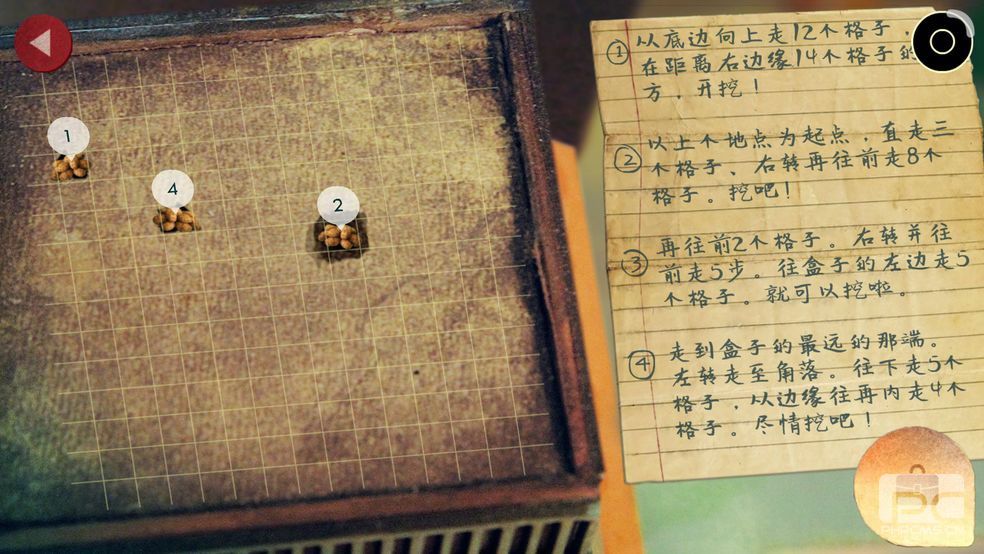 1
4
2
① 从底边向上走12个格子，
在距离右边缘14个格子的
方，开挖！
② 以上个地点为起点，直走三
个格子、右转再往前走8个
格子。挖吧！
③ 再往前2个格子。右转并往
前走5步。往盒子的左边走5
个格子。就可以挖啦。
④ 走到盒子的最远的那端。
左转走至角落。往下走5个
格子，从边缘往再内走4个
格子。尽情挖吧！